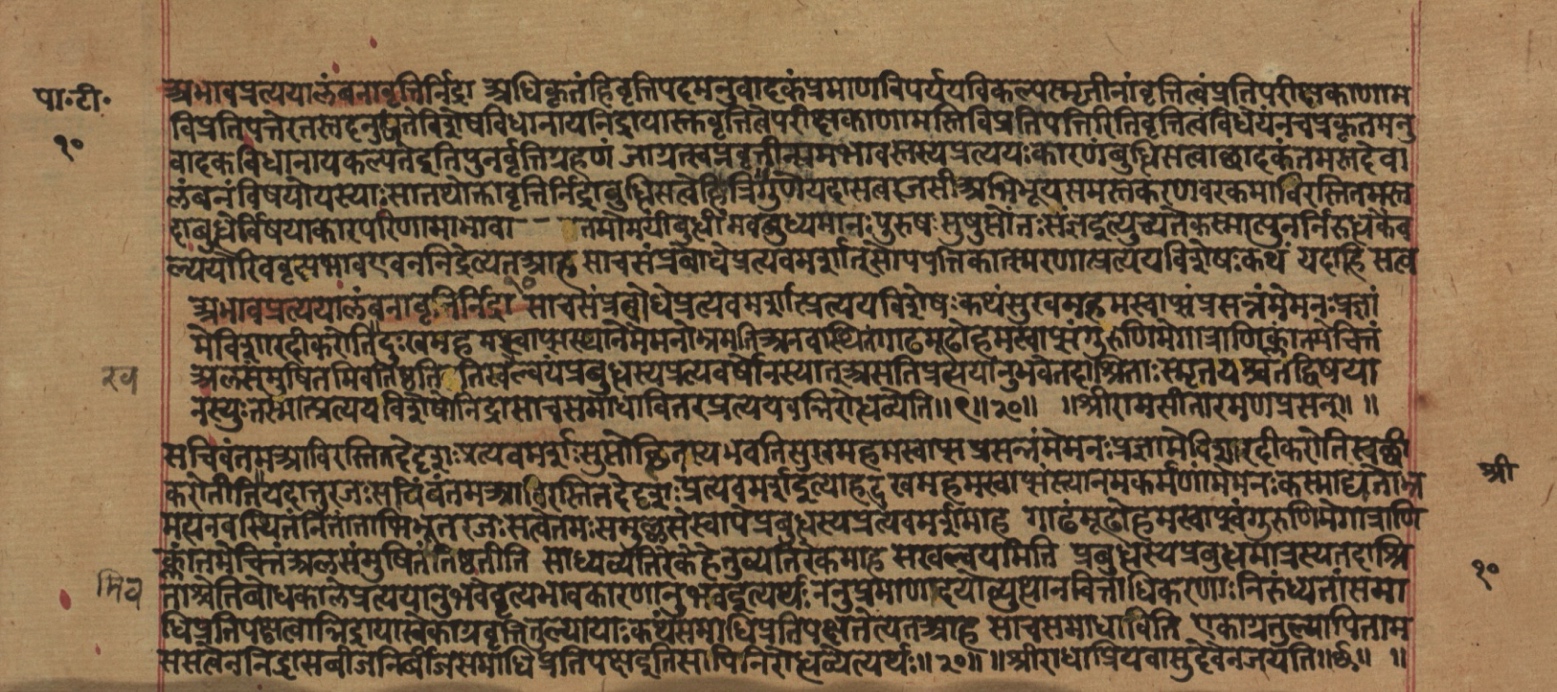 पा॰टी॰
१०
अभावप्रत्ययालंबनावृत्तिर्निद्रा अधिकृतंहिवृत्तिपदमनुवादकंप्रमाणविपर्ययविकल्पस्मृतीनांवृत्तित्वंप्रतिपरीक्षकाणाम
विप्रतिपत्तेरतस्तदनुद्यतेविशेषविधानायनिद्रायास्तुवृत्तित्वेपरीक्षकाणामस्तिविप्रतिपत्तिरितिवृत्तित्वंविधेयंनचप्रकृतमनु
वादकंविधानायकल्पतेइतिपुनर्वृत्तिग्रहणं जाग्रत्स्वप्नवृत्तीनामभावस्तस्यप्रत्ययःकारणंबुद्धिसत्वाछादकंतमस्तदेवा
लंबनंविषयोयस्याःसातथोक्तावृत्तिर्निद्राबुद्धिसत्वेहित्रिगुणेयदासत्वरजसीअभिभूयसमस्तकरणावरकमाविरस्तितमस्त
दाबुद्धेर्विषयाकारपरिणामाभावा तमोमयींबुद्धिमवबुध्यमानःपुरुषःसुषुप्तोंतःसंज्ञइत्युच्यतेकस्मात्पुनर्निरुद्धकैव
ल्ययोरिववृत्त्यभावएवननिद्रेत्यतआह साचसंप्रबोधेप्रत्यवमर्शात्सोपपत्तिकात्स्मरणात्प्रत्ययविशेषःकथं यदाहि सत्व
अभावप्रत्ययालंबनावृत्तिर्निद्रा १० साचसंप्रबोधेप्रत्यवमर्शात्प्रत्ययविशेषःकथंसुखमहमस्वाप्संप्रसन्नंमेमनःप्रज्ञां
मेविशारदीकरोतिदुःखमहमस्वाप्संस्त्यानंमेमनोभ्रमतिअनवस्थितंगाढंमूढोहमस्वाप्संगुरूणिमेगात्राणिक्लांतंमेचित्तं
अलसंमुषितमिवतिष्ठति तिसखल्वयंप्रबुद्धस्यप्रत्यवमर्षोनस्यात्असतिप्रत्ययानुभवेतदाश्रिताःस्मृतयश्चतद्विषया
नस्युःतस्मात्प्रत्ययविशेषोनिद्रासाचसमाधावितरप्रत्ययवन्निरोद्धव्येति॥९॥१०॥ ॥श्रीरामसीतारमणप्रसन्॥ ॥
सचिवंतमआविरस्तितदेदृशःप्रत्यवमर्शःसुप्तोत्थितस्यभवतिसुखमहमस्वाप्संप्रसन्नंमेमनःप्रज्ञांमेविशारदीकरोतिस्वछी
श्री
करोतीतियदातुरजःसचिवंतमआविरस्तितदेदृशःप्रत्यवमर्शइत्याहदुःखमहमस्वाप्संस्त्यानमकर्मण्यंमेमनःकस्माद्यतोभ्र
मत्यनवस्थितंनितांताभिभूतरजःसत्वेतमःसमुल्लासेस्वापेप्रबुद्धस्यप्रत्यवमर्शमाह गाढंमूढोहमस्वाप्संगुरूणिमेगात्राणि
क्लांतंमेचित्तंअलसंमुषितंतिष्ठतीति साध्यव्यतिरेकेहेतुव्यतिरेकमाह सखल्वयमिति प्रबुद्धस्यप्रबुद्धमात्रस्यतदाश्रि
१०
ताअतिबोधकालेप्रत्ययानुभवेवृत्यभावकारणानुभवइत्यर्थःननुप्रमाणादयोव्युत्थानचित्ताधिकरणाःनिरुध्यतांसमा
धिप्रतिपक्षत्वान्निद्रायास्त्वेकाग्रवृत्तितुल्यायाःकथंसमाधिप्रतिपक्षतेत्यतआह साचसमाधाविति एकाग्रतुल्यापिताम
सत्वेननिद्रासबीजनिर्बीजसमाधिप्रतिपक्षइतिसापिनिरोद्धव्येत्यर्थः॥१०॥ ॥श्रीराधाप्रियवासुदेवेनजयति॥ ॥